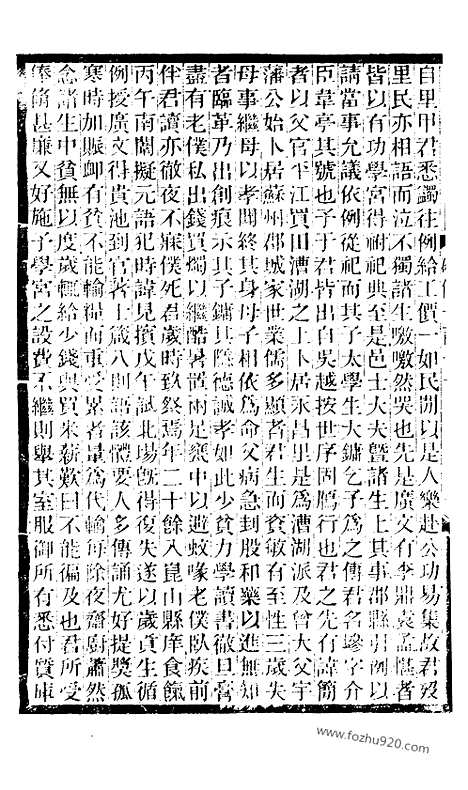 自里甲君悉蠲往例給工價一如民間以是人樂赴公功易集故君歿
里民亦相語而泣不獨諸生噭噭然哭也先是廣文有李鼎袁孟愷者
皆以有功學宮得祔祀典至是邑士大夫曁諸生上其事郡縣引例以
請當事允議依例從祀而其子太學生大鏞乞子爲之傳君名墋字介
臣葦亭其號也于于君皆出自吳越按世序固鴈行也君之先有諱簡
者以父官平江買田漕湖之上卜居永昌里是爲漕湖派及曾大父宇
藩公始卜居蘇州郡城家世業儒多顯者君生而資敏有至性三歲失
母事繼母以孝聞終其身母子相依爲命父病急刲股和藥以進無知
者臨革乃出創痕示其子鏞其隱德誠孝如此少貧力學讀書徹旦膏
盡有老僕私出錢買燭以繼酷暑置兩足甕中以避蚊喙老僕臥疾前
伴君讀亦徹夜不寐僕死君歲時致祭焉年二十餘入崑山縣庠食餼
丙午南闈擬元語犯時諱見擯戊午試北場旣得復失遂以歲貢生循
例授廣文得貴池到官著士箴八則語該體要人多傳誦尤好提獎孤
寒時加賑卹有貧不能輸糧而重受累者量爲代輸每除夜齋廚蕭然
念諸生中貧無以度歲輒給少錢與買米薪歎曰不能徧及也君所受
俸脩甚廉又好施予學宮之設費不繼則舉其室服御所有悉付質庫
www.fozhu920.com